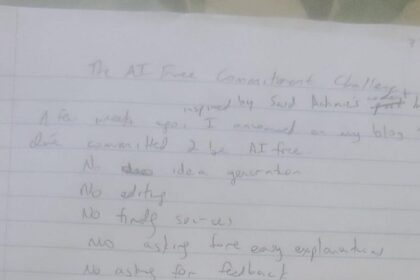 The AI Free Commitment Challenge
inspired by Said
A few weeks ago, I announced on my blog
I've committed 2 be AI free
No idea generation
No editing
No finding sources
No asking for easy explanations
No asking for feedback